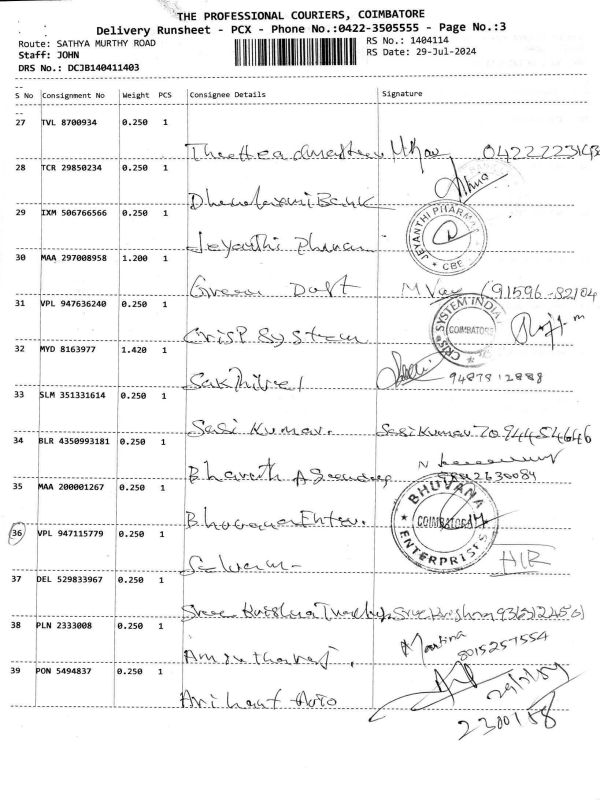 THE PROFESSIONAL COURIERS, COIMBATORE
Delivery Runsheet - PCX - Phone No.:0422-3505555 - Page No.:3
Route: SATHYA MURTHY ROAD
RS No.: 1404114
Staff: JOHN
RS Date: 29-Jul-2024
DRS No.: DCJB140411403
S No Consignment No Weight PCS Consignee Details Signature
27 TVL 8700934 0.250 1
28 TCR 29850234 0.250 1
Dhanalaxmi Bank
29 IXM 506766566 0.250 1
JEYANTHI PHARMA
CBE
Jeyanthi Pharma
30 MAA 297008958 1.200 1
Green Dott
31 VPL 947636240 0.250 1
CRISP SYSTEM INDIA
COIMBATORE
Crisp System
32 MYD 8163977 1.420 1
Sakthivel
33 SLM 351331614 0.250 1
Sasi Kumar. Sasikumar 7094454646
34 BLR 4350993181 0.250 1
Bharath
35 MAA 200001267 0.250 1
BHUVANA ENTERPRISES
COIMBATORE
Bhuvana Enter.
36 VPL 947115779 0.250 1
Selvam
37 DEL 529833967 0.250 1
Sree Krishna
38 PLN 2333008 0.250 1
Martina
8015257554
Amirtharaj.
39 PON 5494837 0.250 1
Arihant Auto
2300158